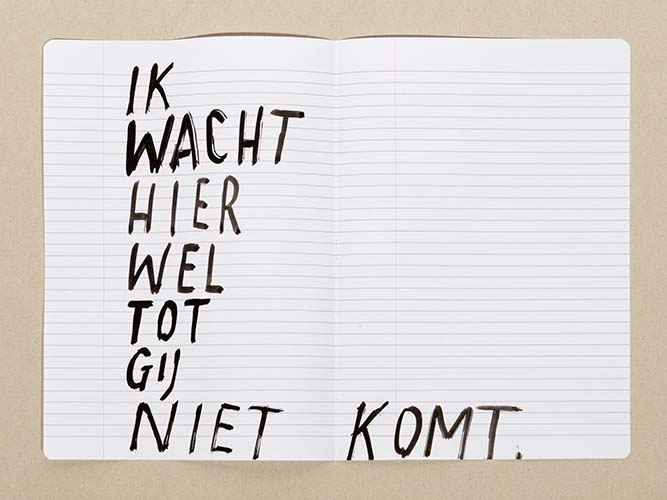 IK
WACHT
HIER
WEL
TOT
GIJ
NIET KOMT.